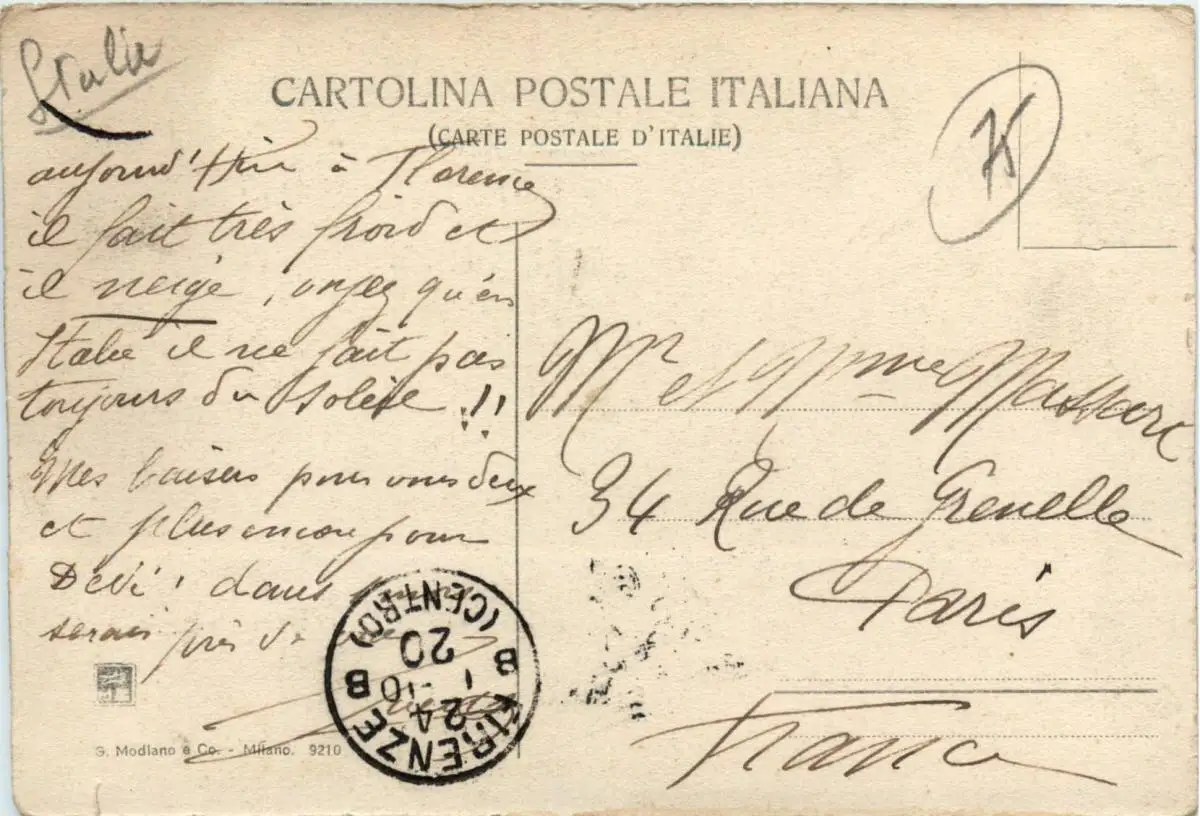 Italie
CARTOLINA POSTALE ITALIANA
(CARTE POSTALE D'ITALIE)
75
aujourd'Hui à Florence
il fait très froid et
il neige, voyez qu'en
Italie il ne fait pas
toujours du soleil !!
Mes baisers pour vous deux
et plus encore pour
Dédé! dans
serai près de
Mr et Mme Massare
34 Rue de Grenelle
Paris
France
FIRENZE
(CENTRO)
B B
20
24
1-10
G. Modiano e Co. - Milano. 9210